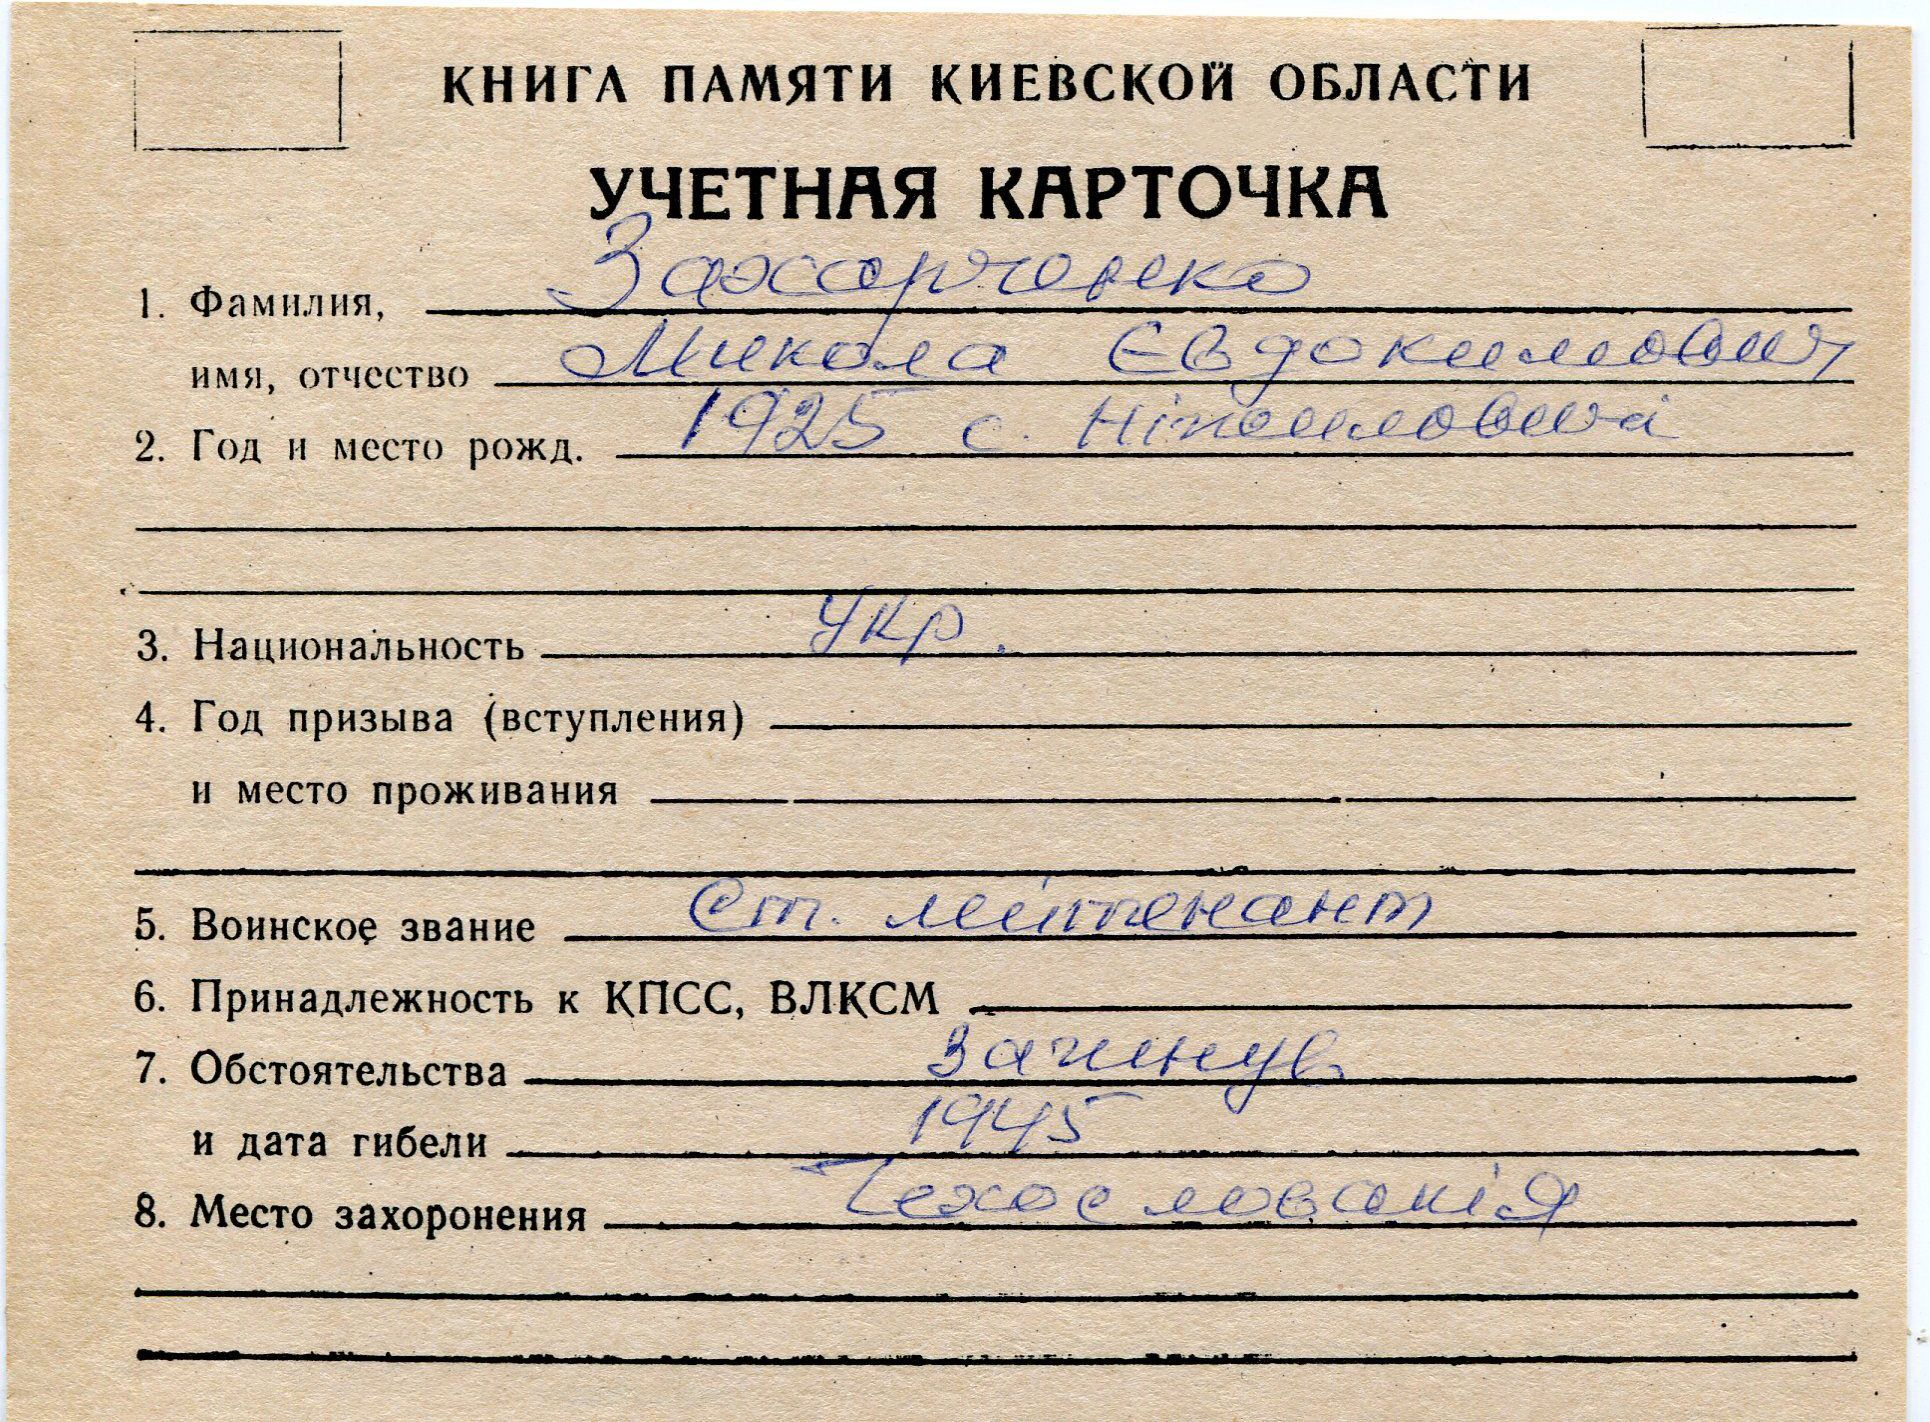 КНИГА ПАМЯТИ КИЕВСКОЙ ОБЛАСТИ
УЧЕТНАЯ КАРТОЧКА
1. Фамилия, Захарченко
имя, отчество Микола Євдокимович
2. Год и место рожд. 1925 с.
3. Национальность Укр.
4. Год призыва (вступления)
и место проживания
5. Воинское звание Ст. лейтенант
6. Принадлежность к КПСС, ВЛКСМ
7. Обстоятельства загинув
и дата гибели 1945
8. Место захоронения Чехословакія